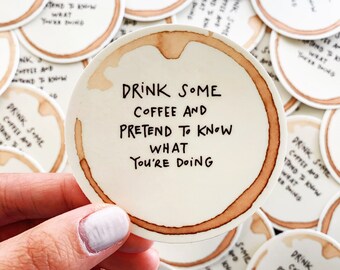 DRINK SOME
COFFEE AND
PRETEND TO KNOW
WHAT
YOU'RE DOING